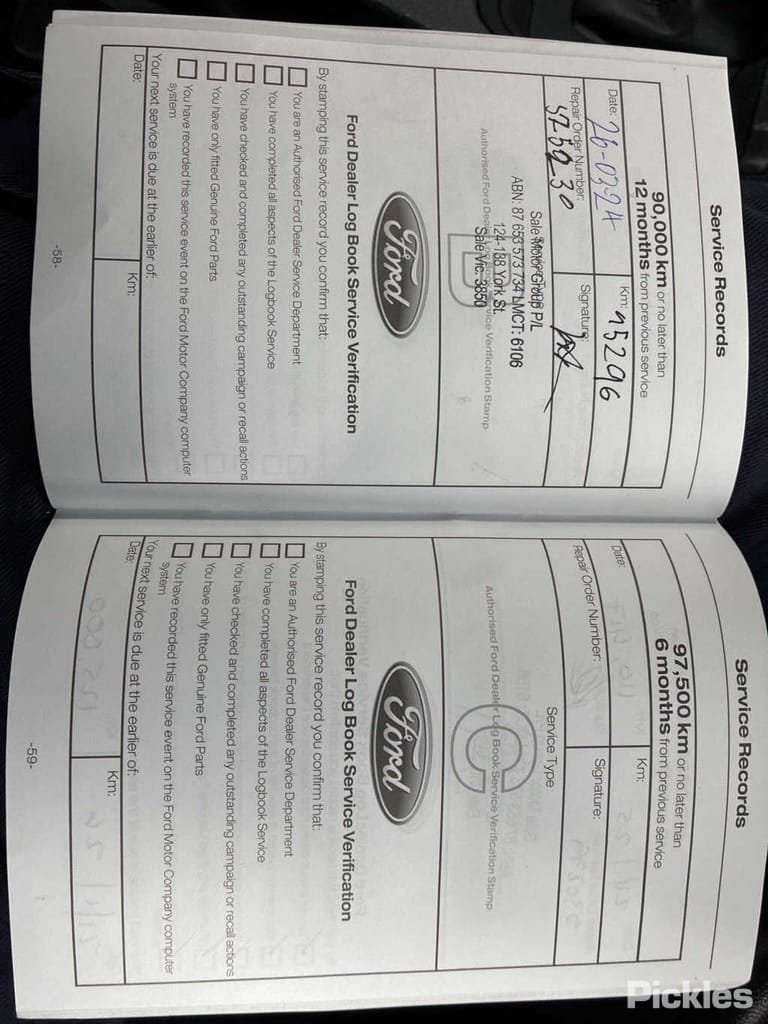 Service Records
90,000 km or no later than
12 months from previous service
Date: 26-03-24
Km: 95296
Repair Order Number:
575930
Signature:
Sale Motor Group P/L
ABN: 87 653 573 734 LMCT: 6106
124-188 York St.
Sale Vic. 3850
Authorised Ford Dealer Log Book Service Verification Stamp
Ford
Ford Dealer Log Book Service Verification
By stamping this service record you confirm that:
You are an Authorised Ford Dealer Service Department
You have completed all aspects of the Logbook Service
You have checked and completed any outstanding campaign or recall actions
You have only fitted Genuine Ford Parts
You have recorded this service event on the Ford Motor Company computer
system
Your next service is due at the earlier of:
Date:
Km:
-58-
Service Records
97,500 km or no later than
6 months from previous service
Date:
Km:
Repair Order Number:
Signature:
Service Type
C
Authorised Ford Dealer Log Book Service Verification Stamp
Ford
Ford Dealer Log Book Service Verification
By stamping this service record you confirm that:
You are an Authorised Ford Dealer Service Department
You have completed all aspects of the Logbook Service
You have checked and completed any outstanding campaign or recall actions
You have only fitted Genuine Ford Parts
You have recorded this service event on the Ford Motor Company computer
system
Your next service is due at the earlier of:
Date:
Km:
-59-
Pickles